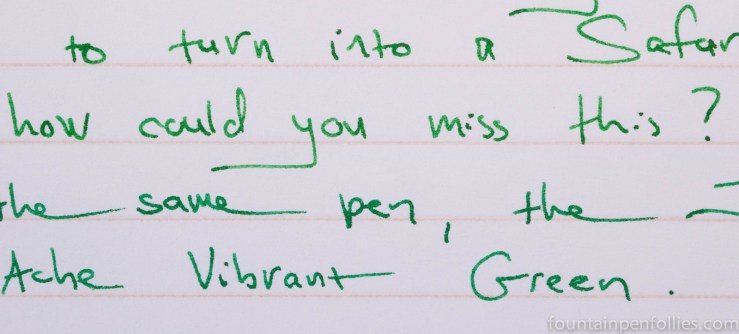 to turn into a Safar
how could you miss this?
the same pen, the
Ache Vibrant Green.
fountainpenfollies.com